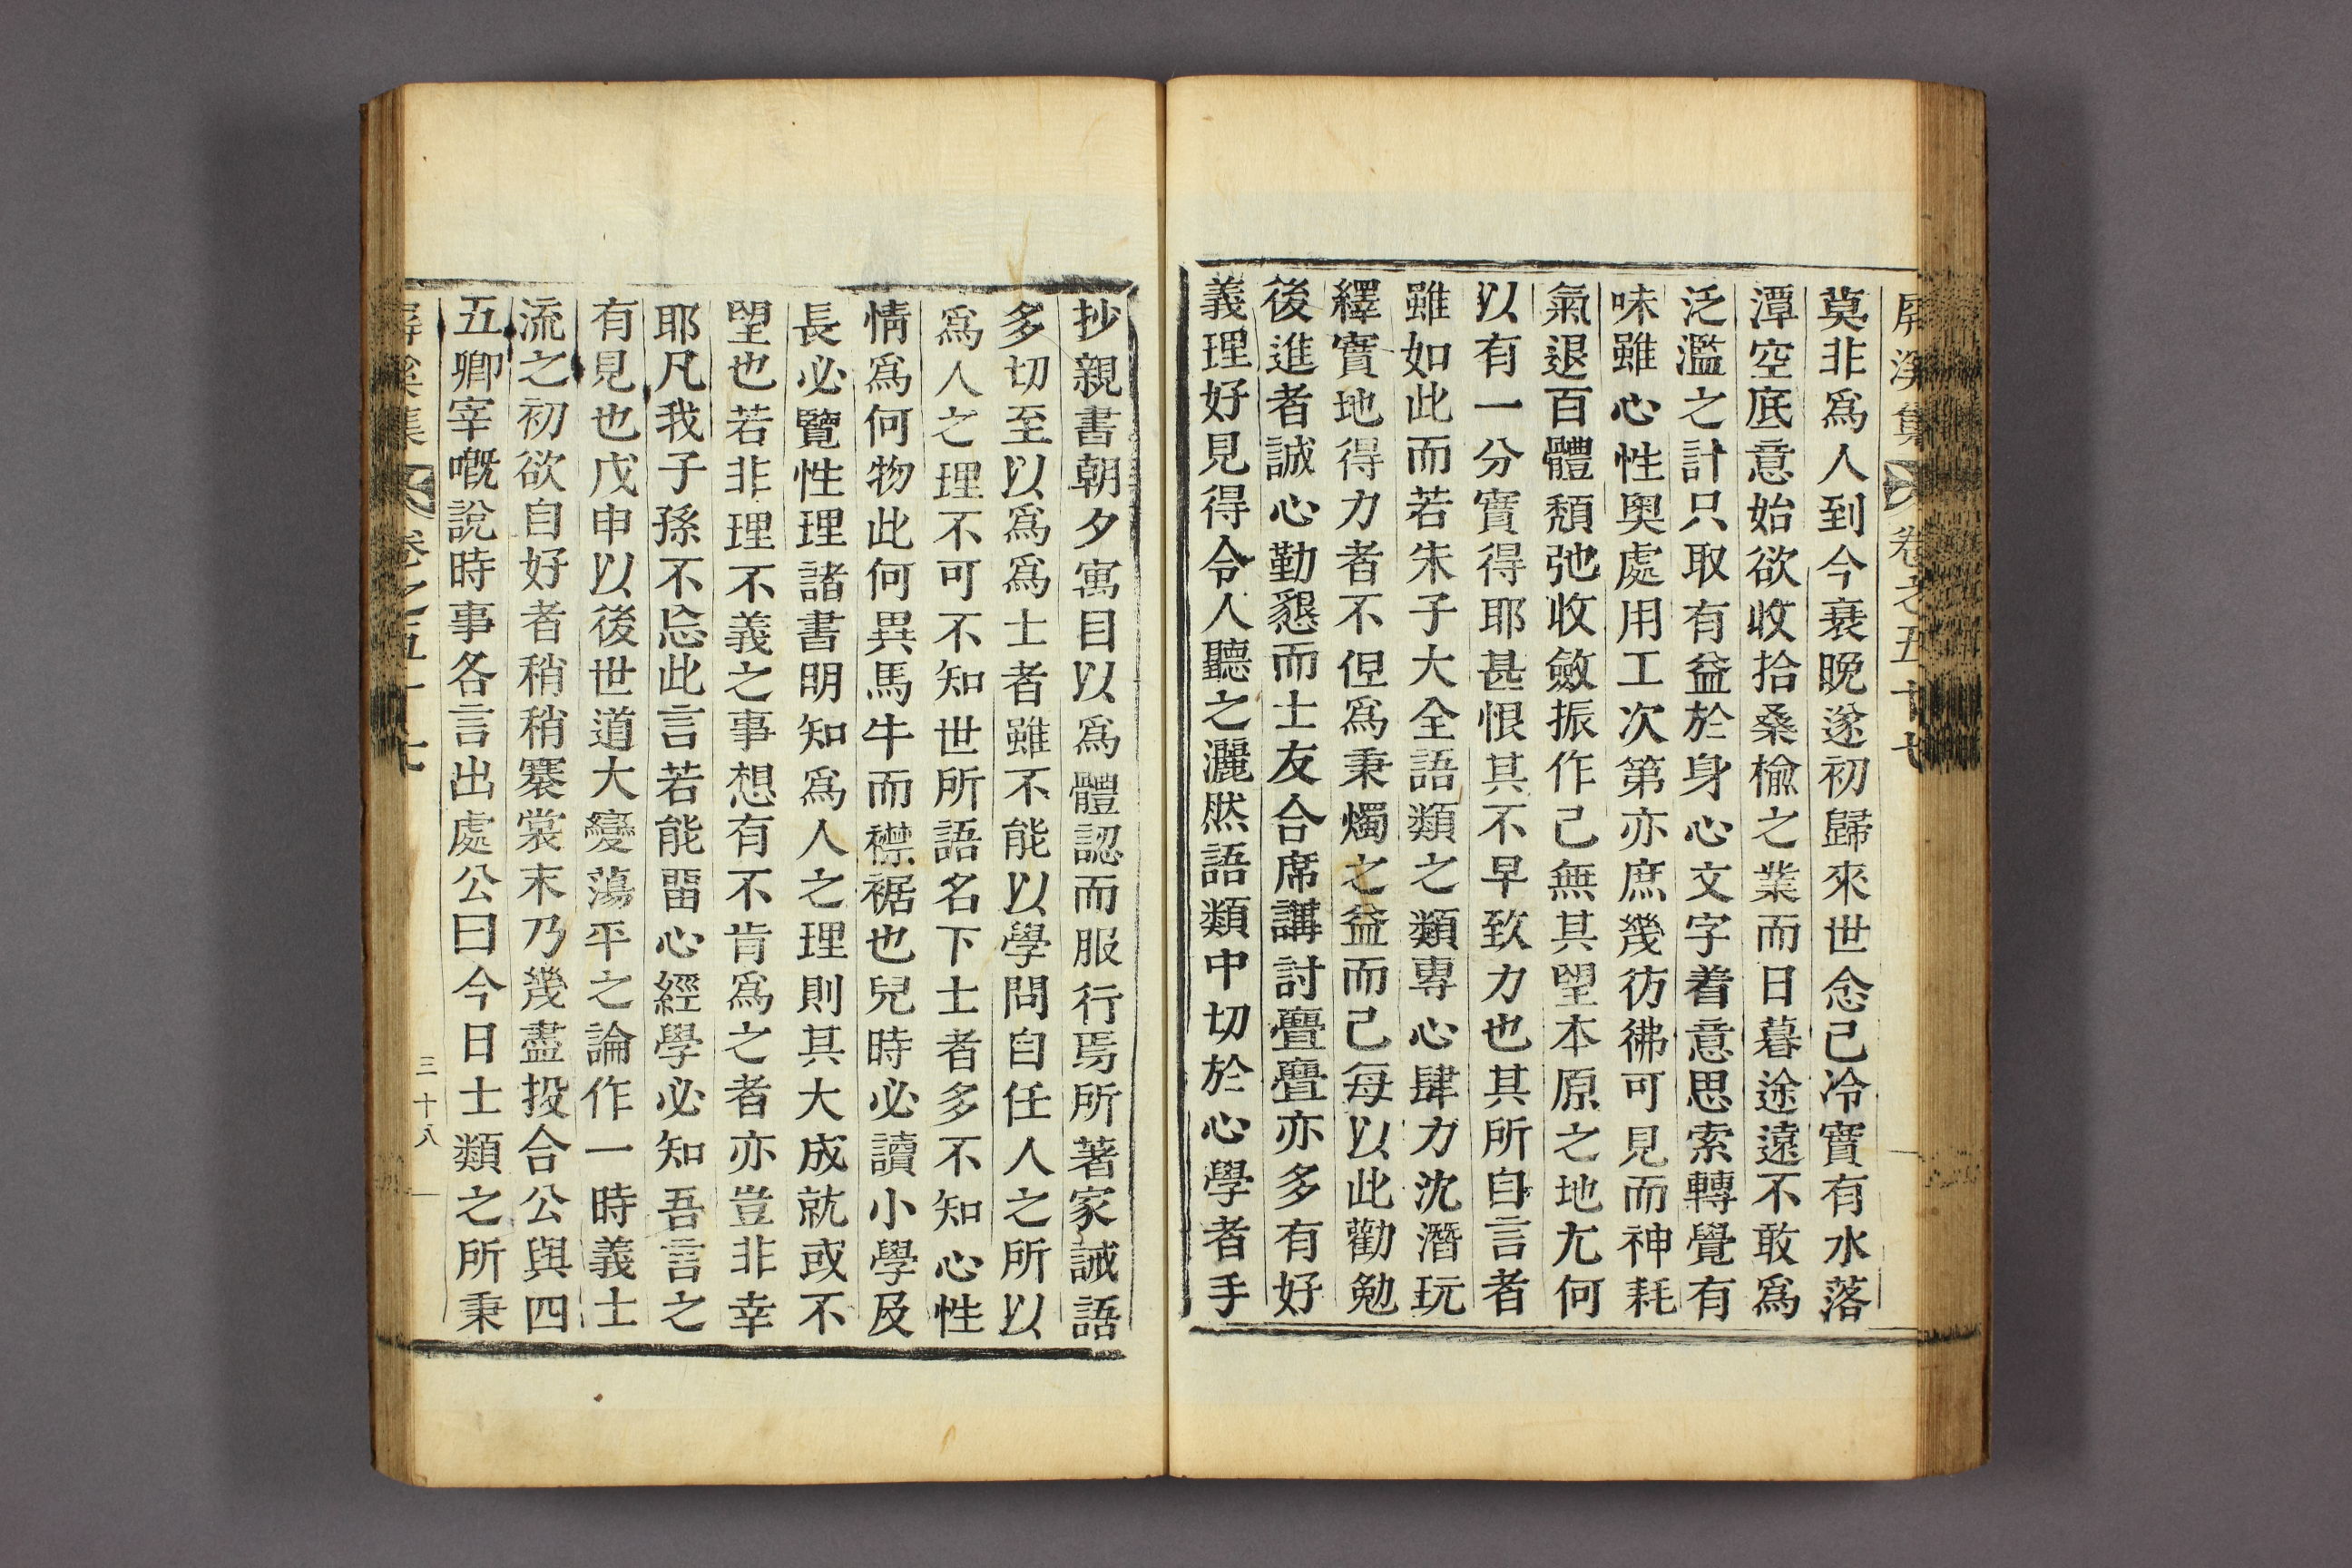 屛溪集 卷之五十七
莫非爲人到今衰晩遂初歸來世念已冷實有水落
潭空底意始欲收拾桑楡之業而日暮途遠不敢爲
泛濫之計只取有益於身心文字着意思索轉覺有
味雖心性奧處用工次第亦庶幾彷彿可見而神耗
氣退百體頹弛收斂振作已無其望本原之地尤何
以有一分實得耶甚恨其不早致力也其所自言者
雖如此而若朱子大全語類之類專心肆力沈潛玩
繹實地得力者不但爲秉燭之益而已每以此勸勉
後進者誠心勤懇而士友合席講討亹亹亦多有好
義理好見得令人聽之灑然語類中切於心學者手
抄親書朝夕寓目以爲體認而服行焉所著家誡語
多切至以爲爲士者雖不能以學問自任人之所以
爲人之理不可不知世所語名下士者多不知心性
情爲何物此何異馬牛而襟裾也兒時必讀小學及
長必覽性理諸書明知爲人之理則其大成就或不
望也若非理不義之事想有不肯爲之者亦豈非幸
耶凡我子孫不忘此言若能留心經學必知吾言之
有見也戊申以後世道大變蕩平之論作一時義士
流之初欲自好者稍稍褰裳末乃幾盡投合公與四
五卿宰嘅說時事各言出處公曰今日士類之所秉
屛溪集 卷之五十七 三十八